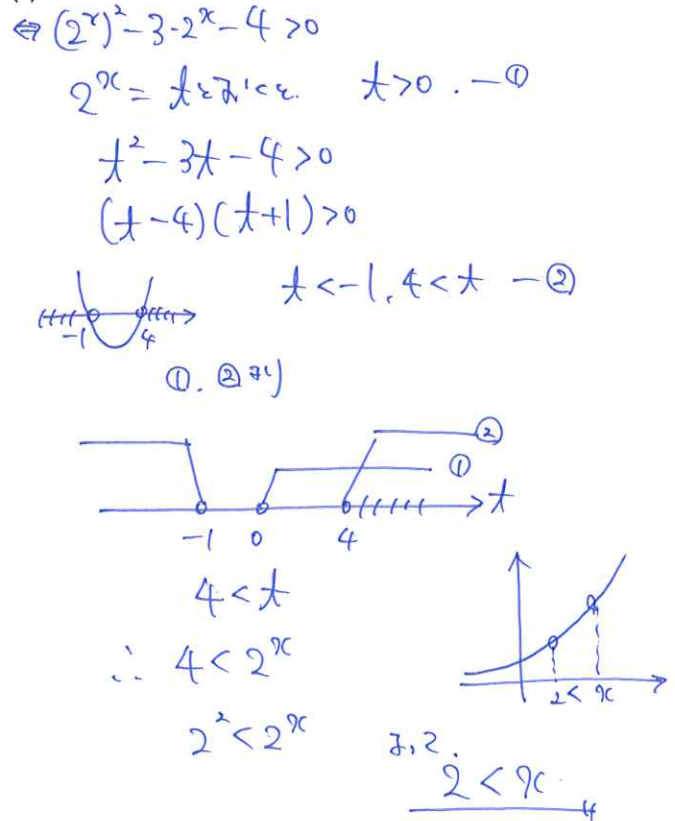 ⇔ (2^x)^2 - 3・2^x - 4 > 0
2^x = t とおくと. t > 0. ー①
t^2 - 3t - 4 > 0
(t - 4)(t + 1) > 0
t < -1, 4 < t ー②
-1 4
①. ②より
②
①
t
-1 0 4
4 < t
∴ 4 < 2^x
2 < x
2^2 < 2^x
よって.
2 < x